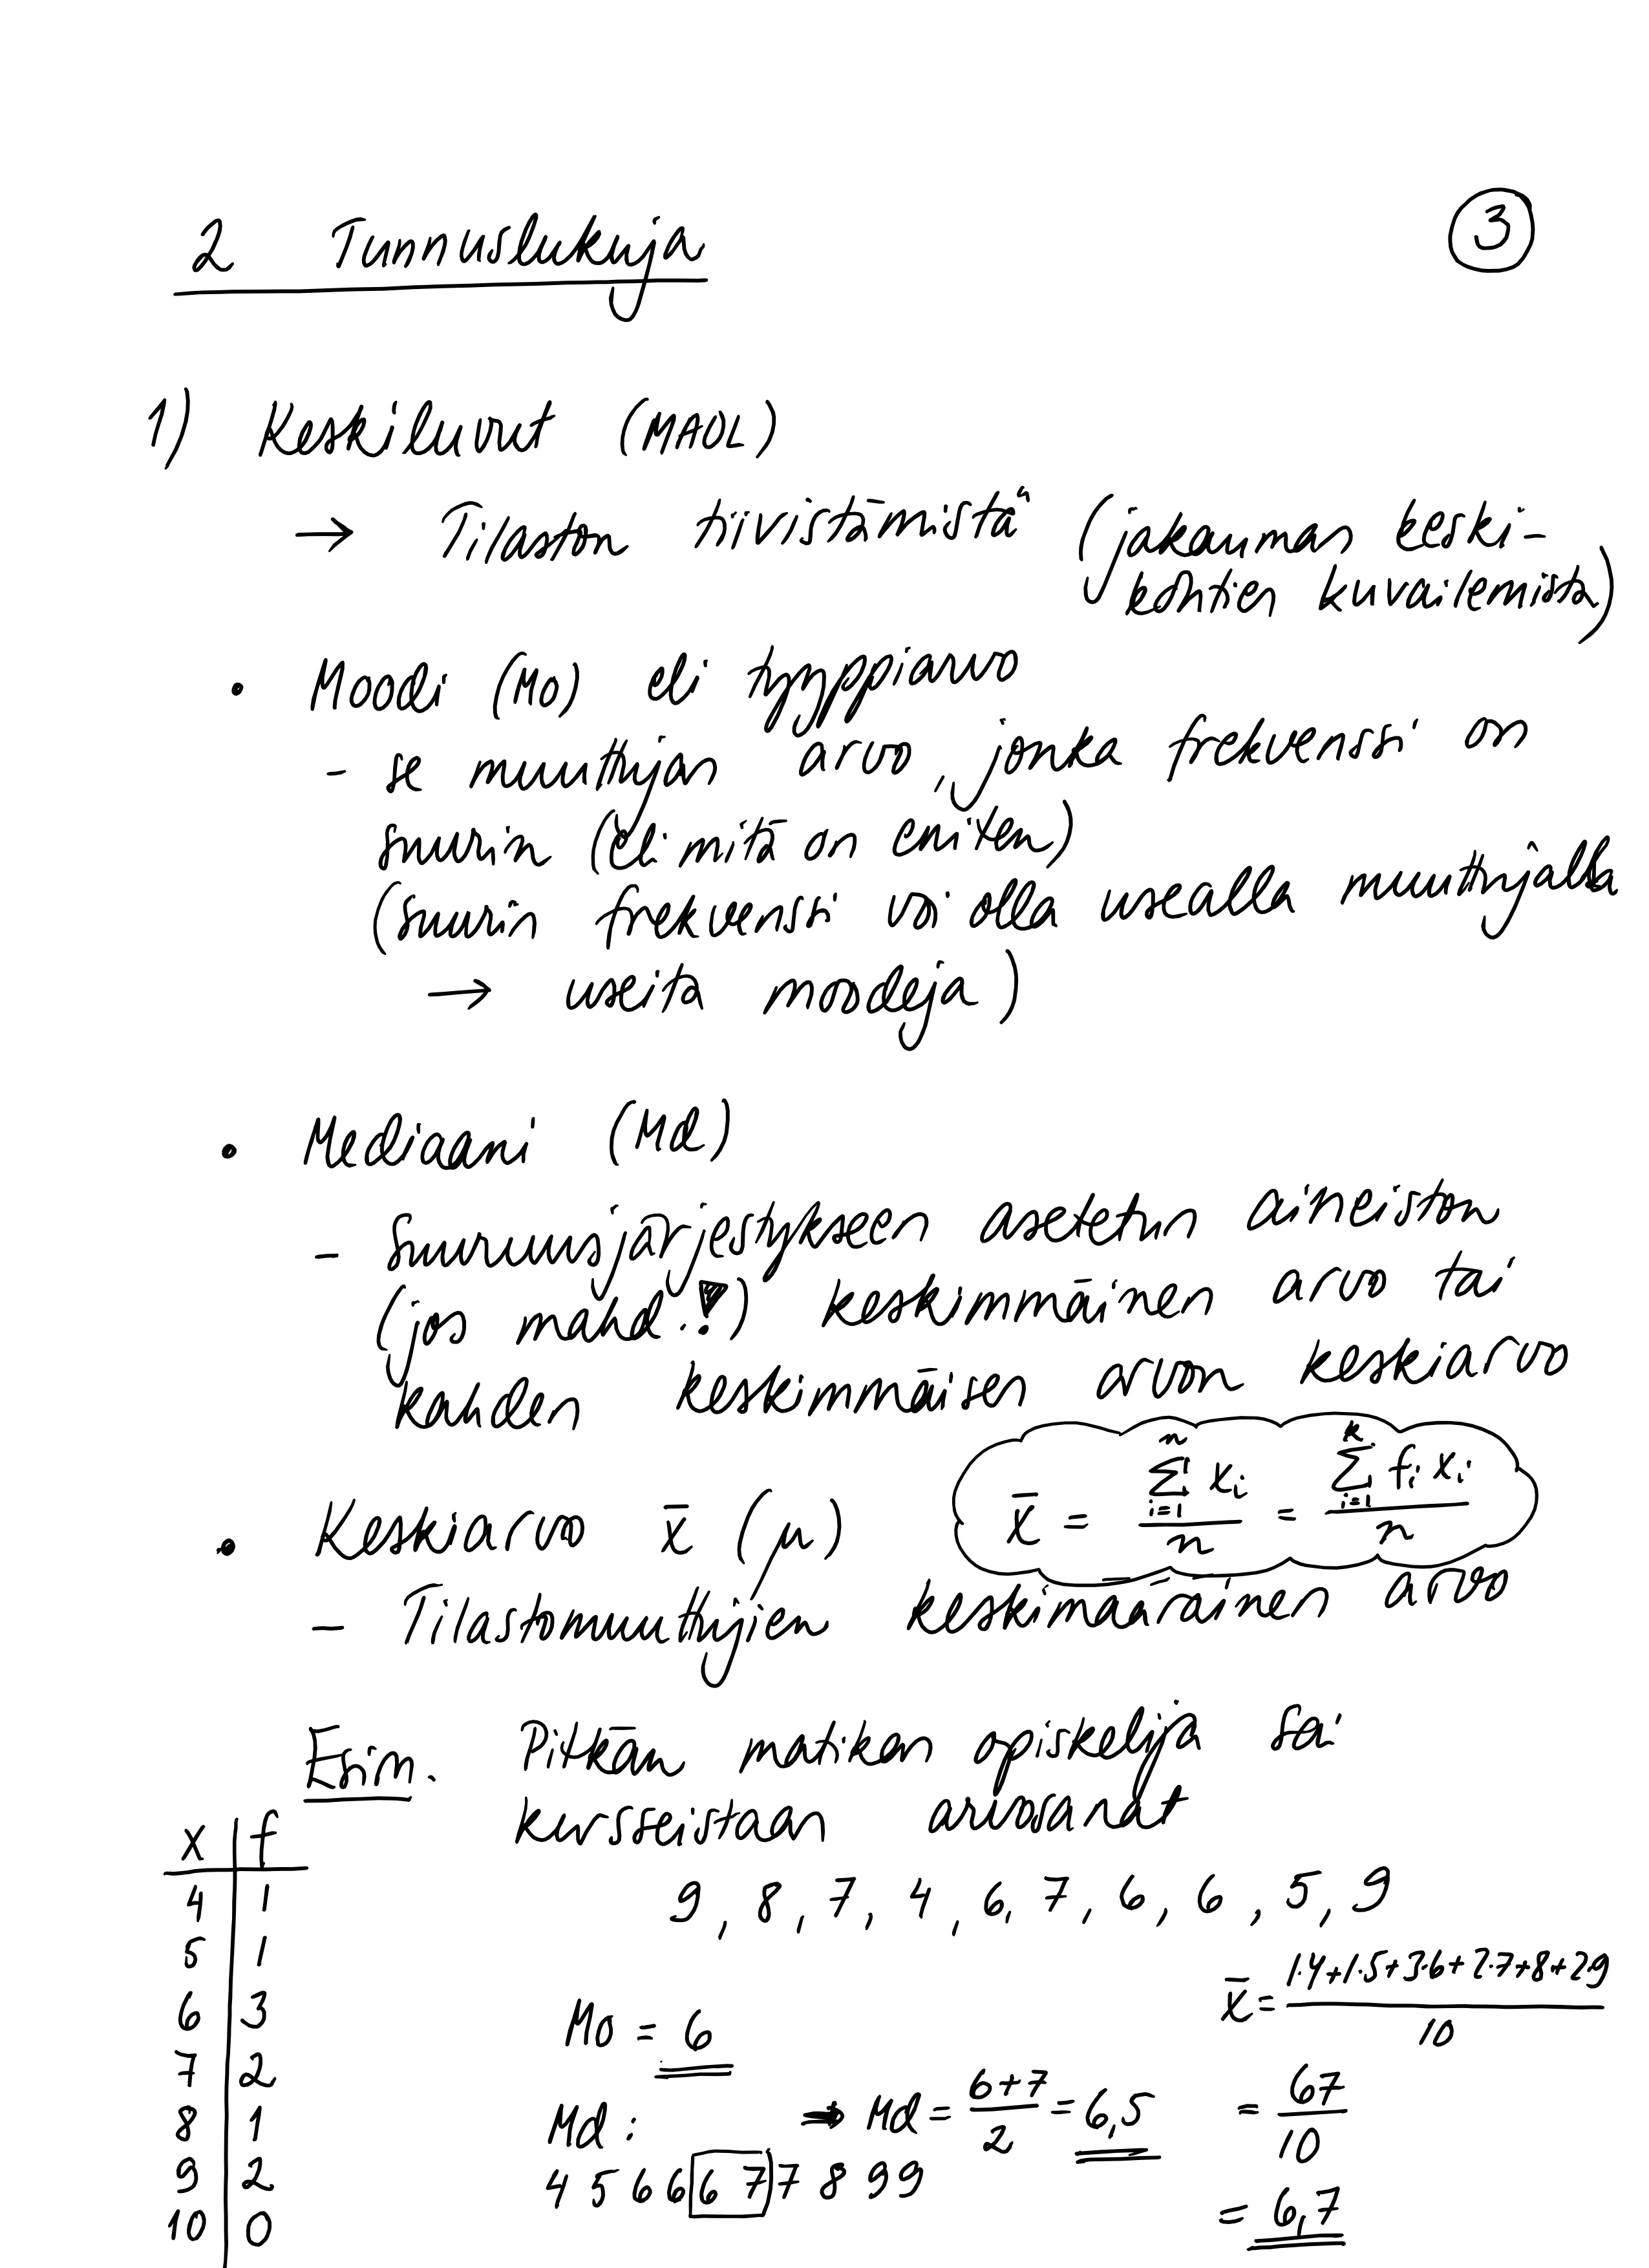 2 Tunnuslukuja
3
1) Keskiluvut (MAOL)
→ Tilaston tiivistämistä (jakauman keski-
kohtien kuvailemista)
• Moodi (Mo) eli tyyppiarvo
- se muuttujan arvo, jonka frekvenssi on
suurin (eli mitä on eniten)
(suurin frekvenssi voi olla usealla muuttujalla
→ useita moodeja)
• Mediaani (Md)
- Suuruusjärjestykseen asetetun aineiston
(jos mahd.!) keskimmäinen arvo tai
kahden keskimmäisen arvon keskiarvo
• Keskiarvo x̄ (μ)
x̄ = (∑_{i=1}^{n} xᵢ)/n = (∑_{i=1}^{k} fᵢ xᵢ)/n
- Tilastomuuttujien keskimääräinen arvo
Esim. Pitkän matikan opiskelija sai
kursseistaan arvosanat
9, 8, 7, 4, 6, 7, 6, 6, 5, 9
x f
4 1
5 1
6 3
7 2
8 1
9 2
10 0
Mo = 6
Md: ⇒ Md = (6+7)/2 = 6,5
4 5 6 6 6 7 7 8 9 9
x̄ = (1·4+1·5+3·6+2·7+8+2·9)/10
= 67/10
= 6,7